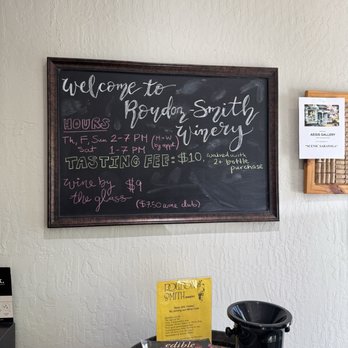 Welcome to
Roudon-Smith
Winery
HOURS
Th, F, Sun 2-7 PM (M-W
Sat 1-7 PM by appt)
TASTING FEE: $10, waived with
2+ bottle
purchase
wine by
the glass $9
($7.50 wine club)
AEGIS GALLERY
ROUDON
SMITH
edible